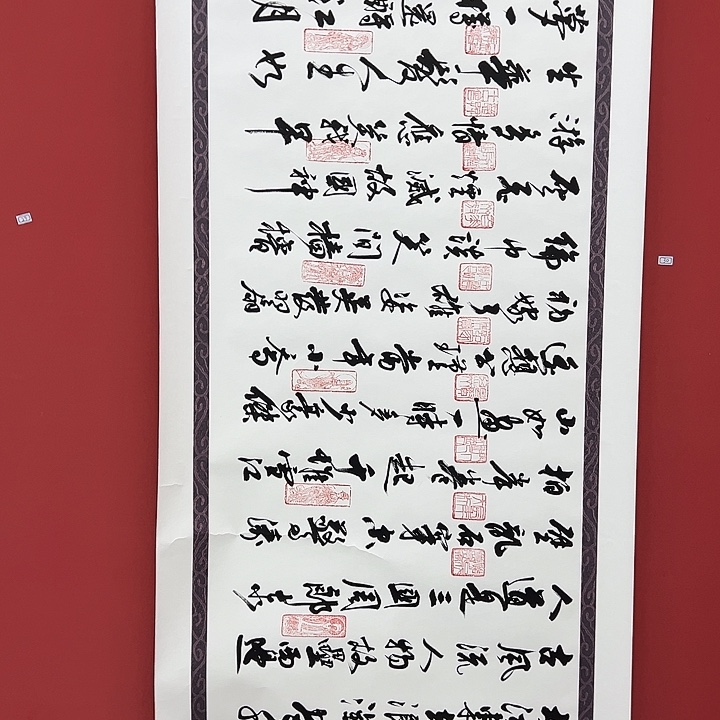 大江東去浪淘盡千
古風流人物故壘西邊
人道是三國周郎赤
壁亂石穿空驚濤
拍岸捲起千堆雪江
山如畫一時多少豪傑
遙想公瑾當年小喬
初嫁了雄姿英發羽扇
綸巾談笑間檣櫓
灰飛煙滅故國神
游多情應笑我早
生華髮人生如
夢一樽還酹江月